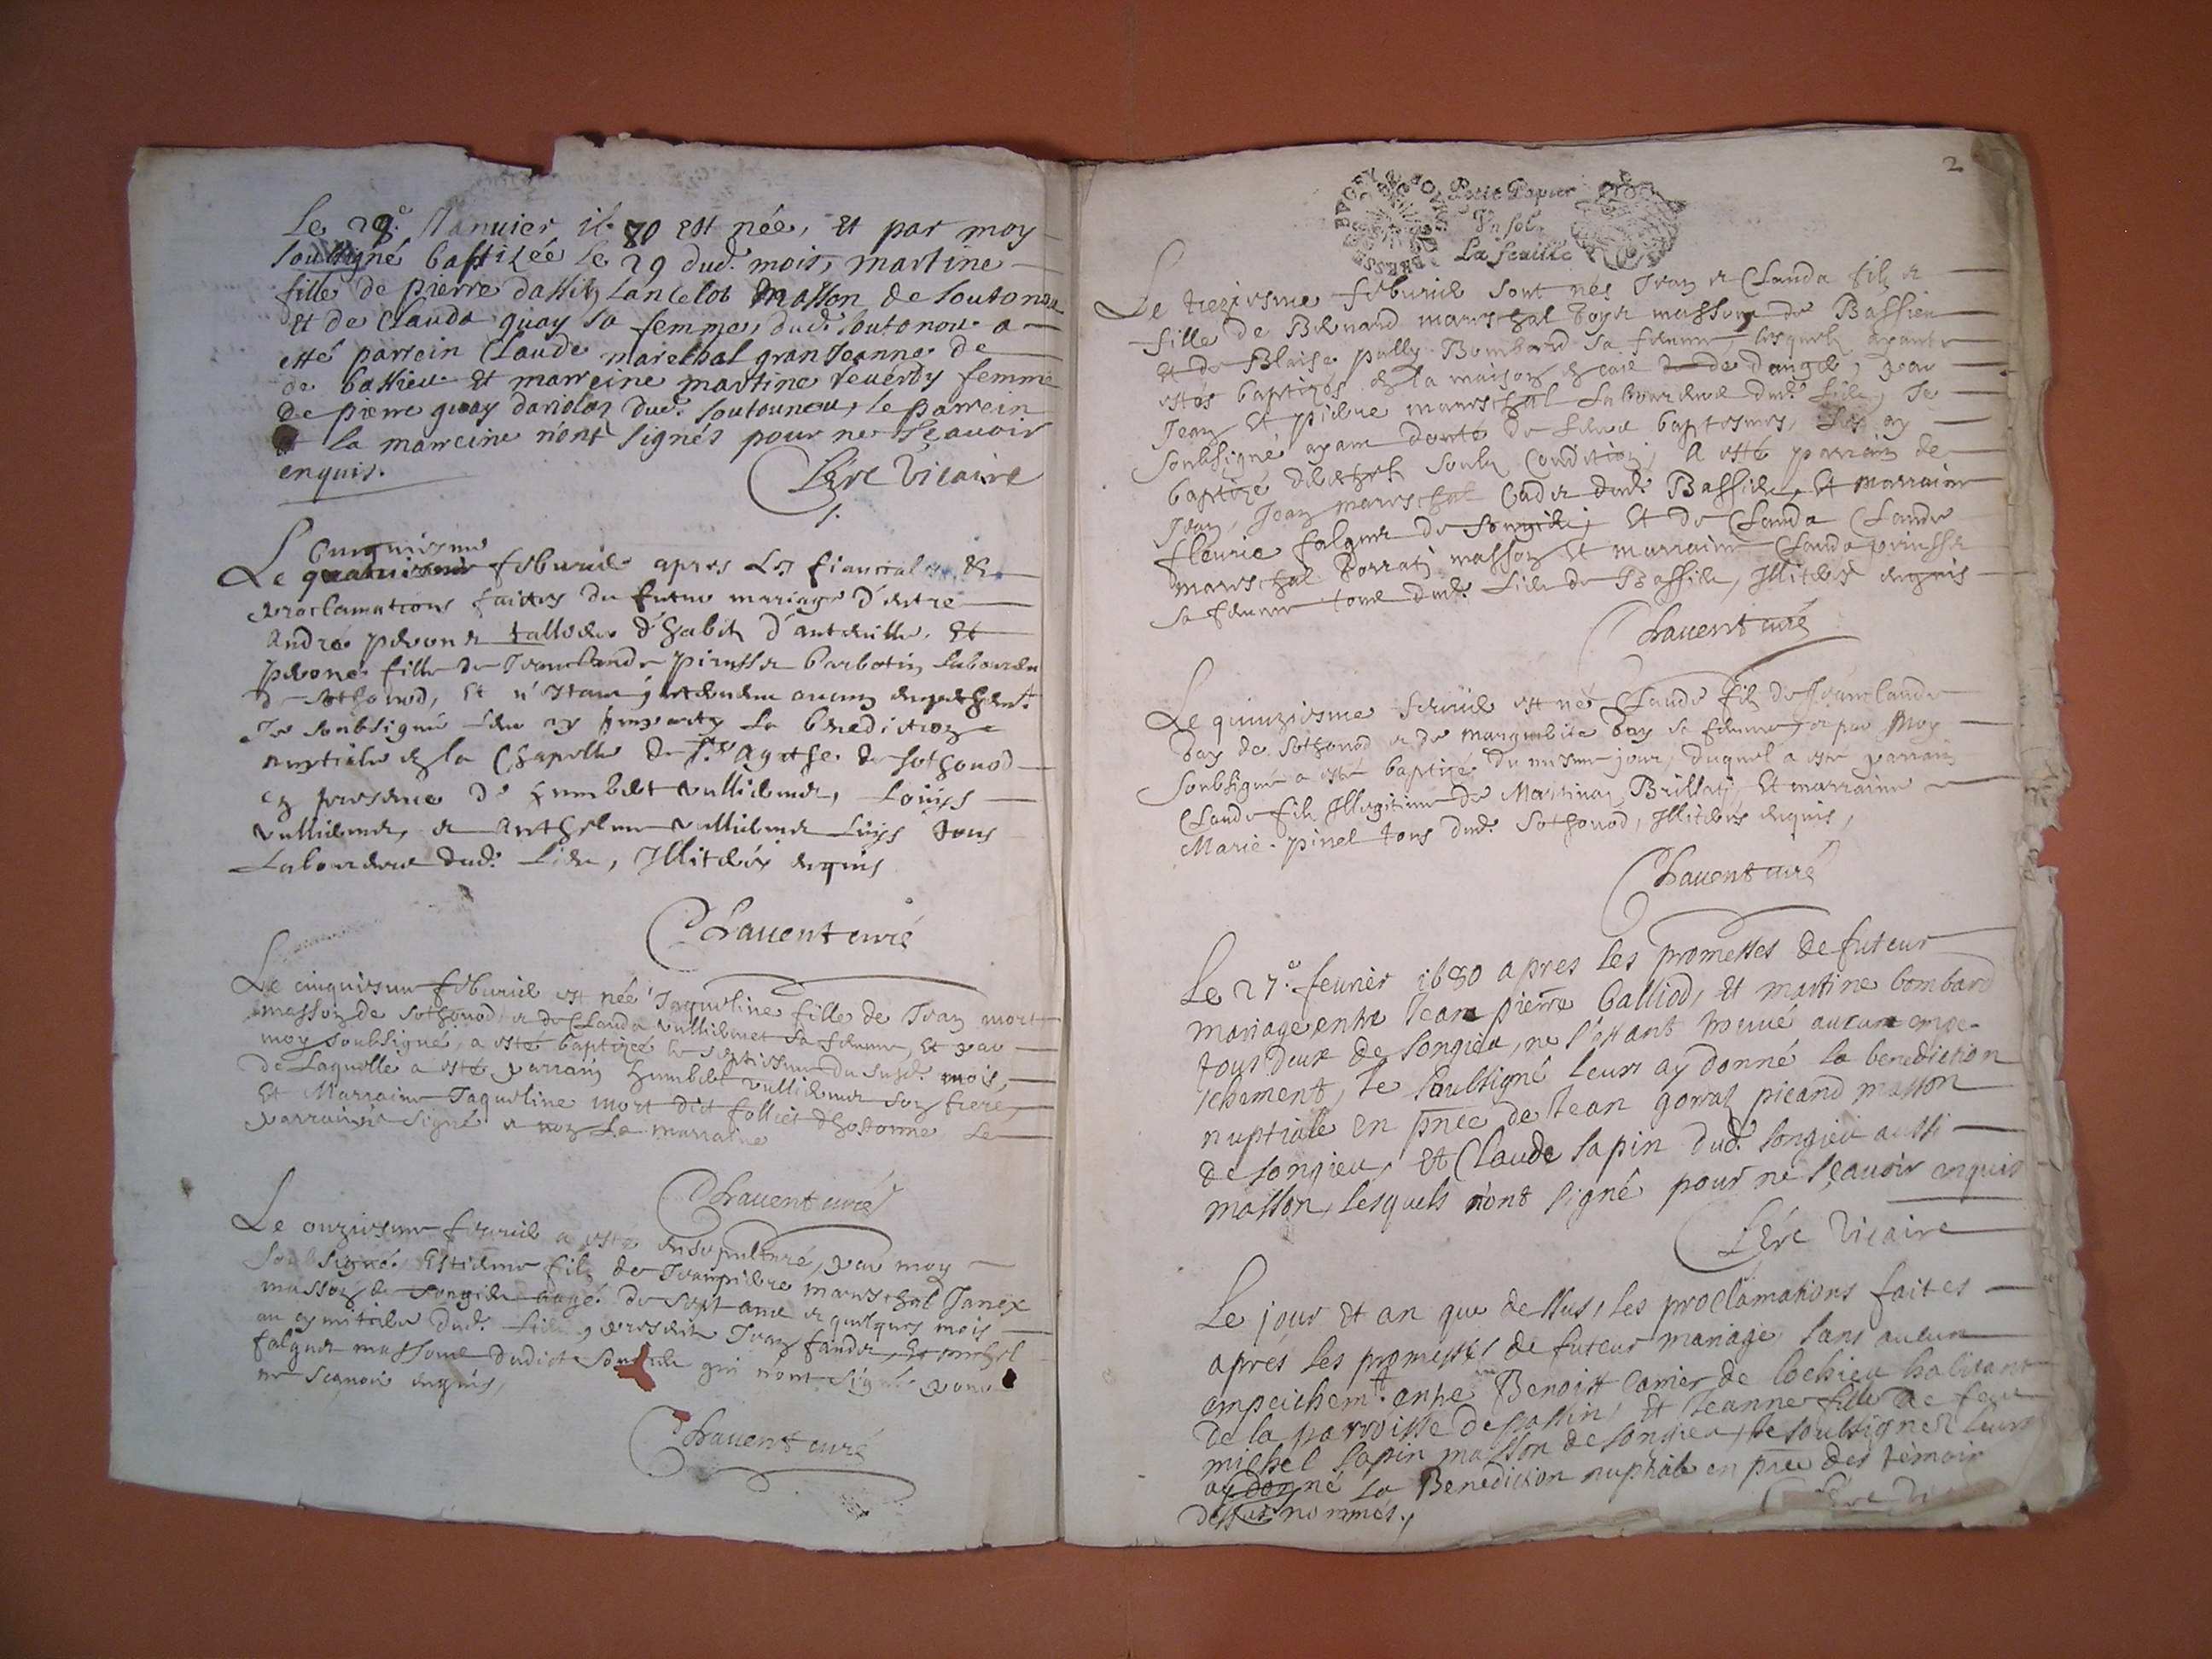 Le 28.e Januier 1680 est née, et par moy
soussigné baptizée le 29 dud. mois, martine
fille de pierre dassin Lancelot masson de soutonou
et de Clauda quay sa femme, dud. soutonou a
esté parrein Claude mareschal gran Jeanne de
de bassieu et marreine martine reuerdy femme
de pierre quay dariolaz dud. soutounou, le parrein
et la marreine n'ont signés pour ne sçauoir
enquis.
Lere Vicaire
Cinquiesme
Le quatriesme feburier apres Les fiancial et
proclamations faittes du futur mariage d'entre
André peronet dhabit d'anteuille, Et
peronne fille de Jeanclaude pirasset barbotin laboureur
de sothonod, Et n'estant interuenu aucun empechem.t
Je soubsigné leur ay imparty La benediction
nuptiale en la Chapelle de Ste Agathe de sothonod
en presence de humbert vulliemet, Loüys
vulliemet, et Anthelme vulliemet Luys tous
Laboureurs dud. Lieu, Illiterés enquis
Chauent curé
Le cinquiesme feburier est née Jaqueline fille de Jean mort
masson de sothonod et de Clauda vulliemet sa femme, Et par
moy soubsigné, a esté baptizée le septiesme du susd. mois,
de Laquelle a esté parrain humbert vulliemet son frere,
Et Marraine Jaqueline mort dict folliet dhostonne Le
parrain a signé et non La marraine
Chauent curé
Le onziesme feburier a esté ensepulturé, par moy
soubsigné Estienne filz de Jeanpierre mareschal Janex
masson de songieu aagé de sept ans et quelques mois
au cymitiere dud. Lieu, presents Jean et michel
falquet massons dudict songieu qui n'ont signé pour
ne scauoir enquis,
Chauent curé
2
BVGEY
BRESSE
Petit Papier
Vn sol
La feuille
Le treziesme feburier sont nés Jean et Clauda filz et
fille de Bernard mareschal masson de Bassieu
Et de Blaise pally Bombard sa femme, lesquels ayants
estés baptizés en la maison en cas de danger, par
Jean Et pierre mareschal Laboureurs dud. Lieu, Je
soubsigné ayant doute de leurs baptesmes, Les ay
baptizé derechef soubz Condition, A esté parrain de
Jean, Jean mareschal Cadet dud. Bassieu, Et marraine
fleurie falquet de songieu; Et de Clauda Claude
mareschal masson Et marraine Clauda
sa femme tous dud. Lieu de Bassieu, Illiterés enquis
Chauent curé
Le quinziesme feurier est né Claude filz de Jeanclaude
bay de sothonod et de marguerite bay sa femme, et par Moy
soubsigné a esté baptizé du mesme jour, duquel a esté parrain
Claude filz Illegitime de Martinaz Brillat, Et marraine
Marie pinel tous dud. Sothonod, Illiterés enquis,
Chauent curé
Le 27.e feurier 1680 apres les promesses de futeur
mariage entre Jean pierre balliod, et martine bombard
tous deux de songieu, ne s'estant trouué aucun empe-
schement, Je soubsigné leurs ay donné la benediction
nuptiale en pnce de Jean gorraz picand masson
de songieu, et Claude sapin dud. songieu aussi
masson, lesquels n'ont signé pour ne sçauoir enquis
Lere Vicaire
Le jour et an que dessus, les proclamations faites
apres les promesses de futeur mariage sans aucun
empeichem.t entre Benoist Camer de lochieu habitant
de la parroisse de passin, et Jeanne fille de feu
michel sapin masson de songieu, Je soubsigné leurs
ay donné la Benediction nuptiale en pnce des temoin
dessus nommés.,